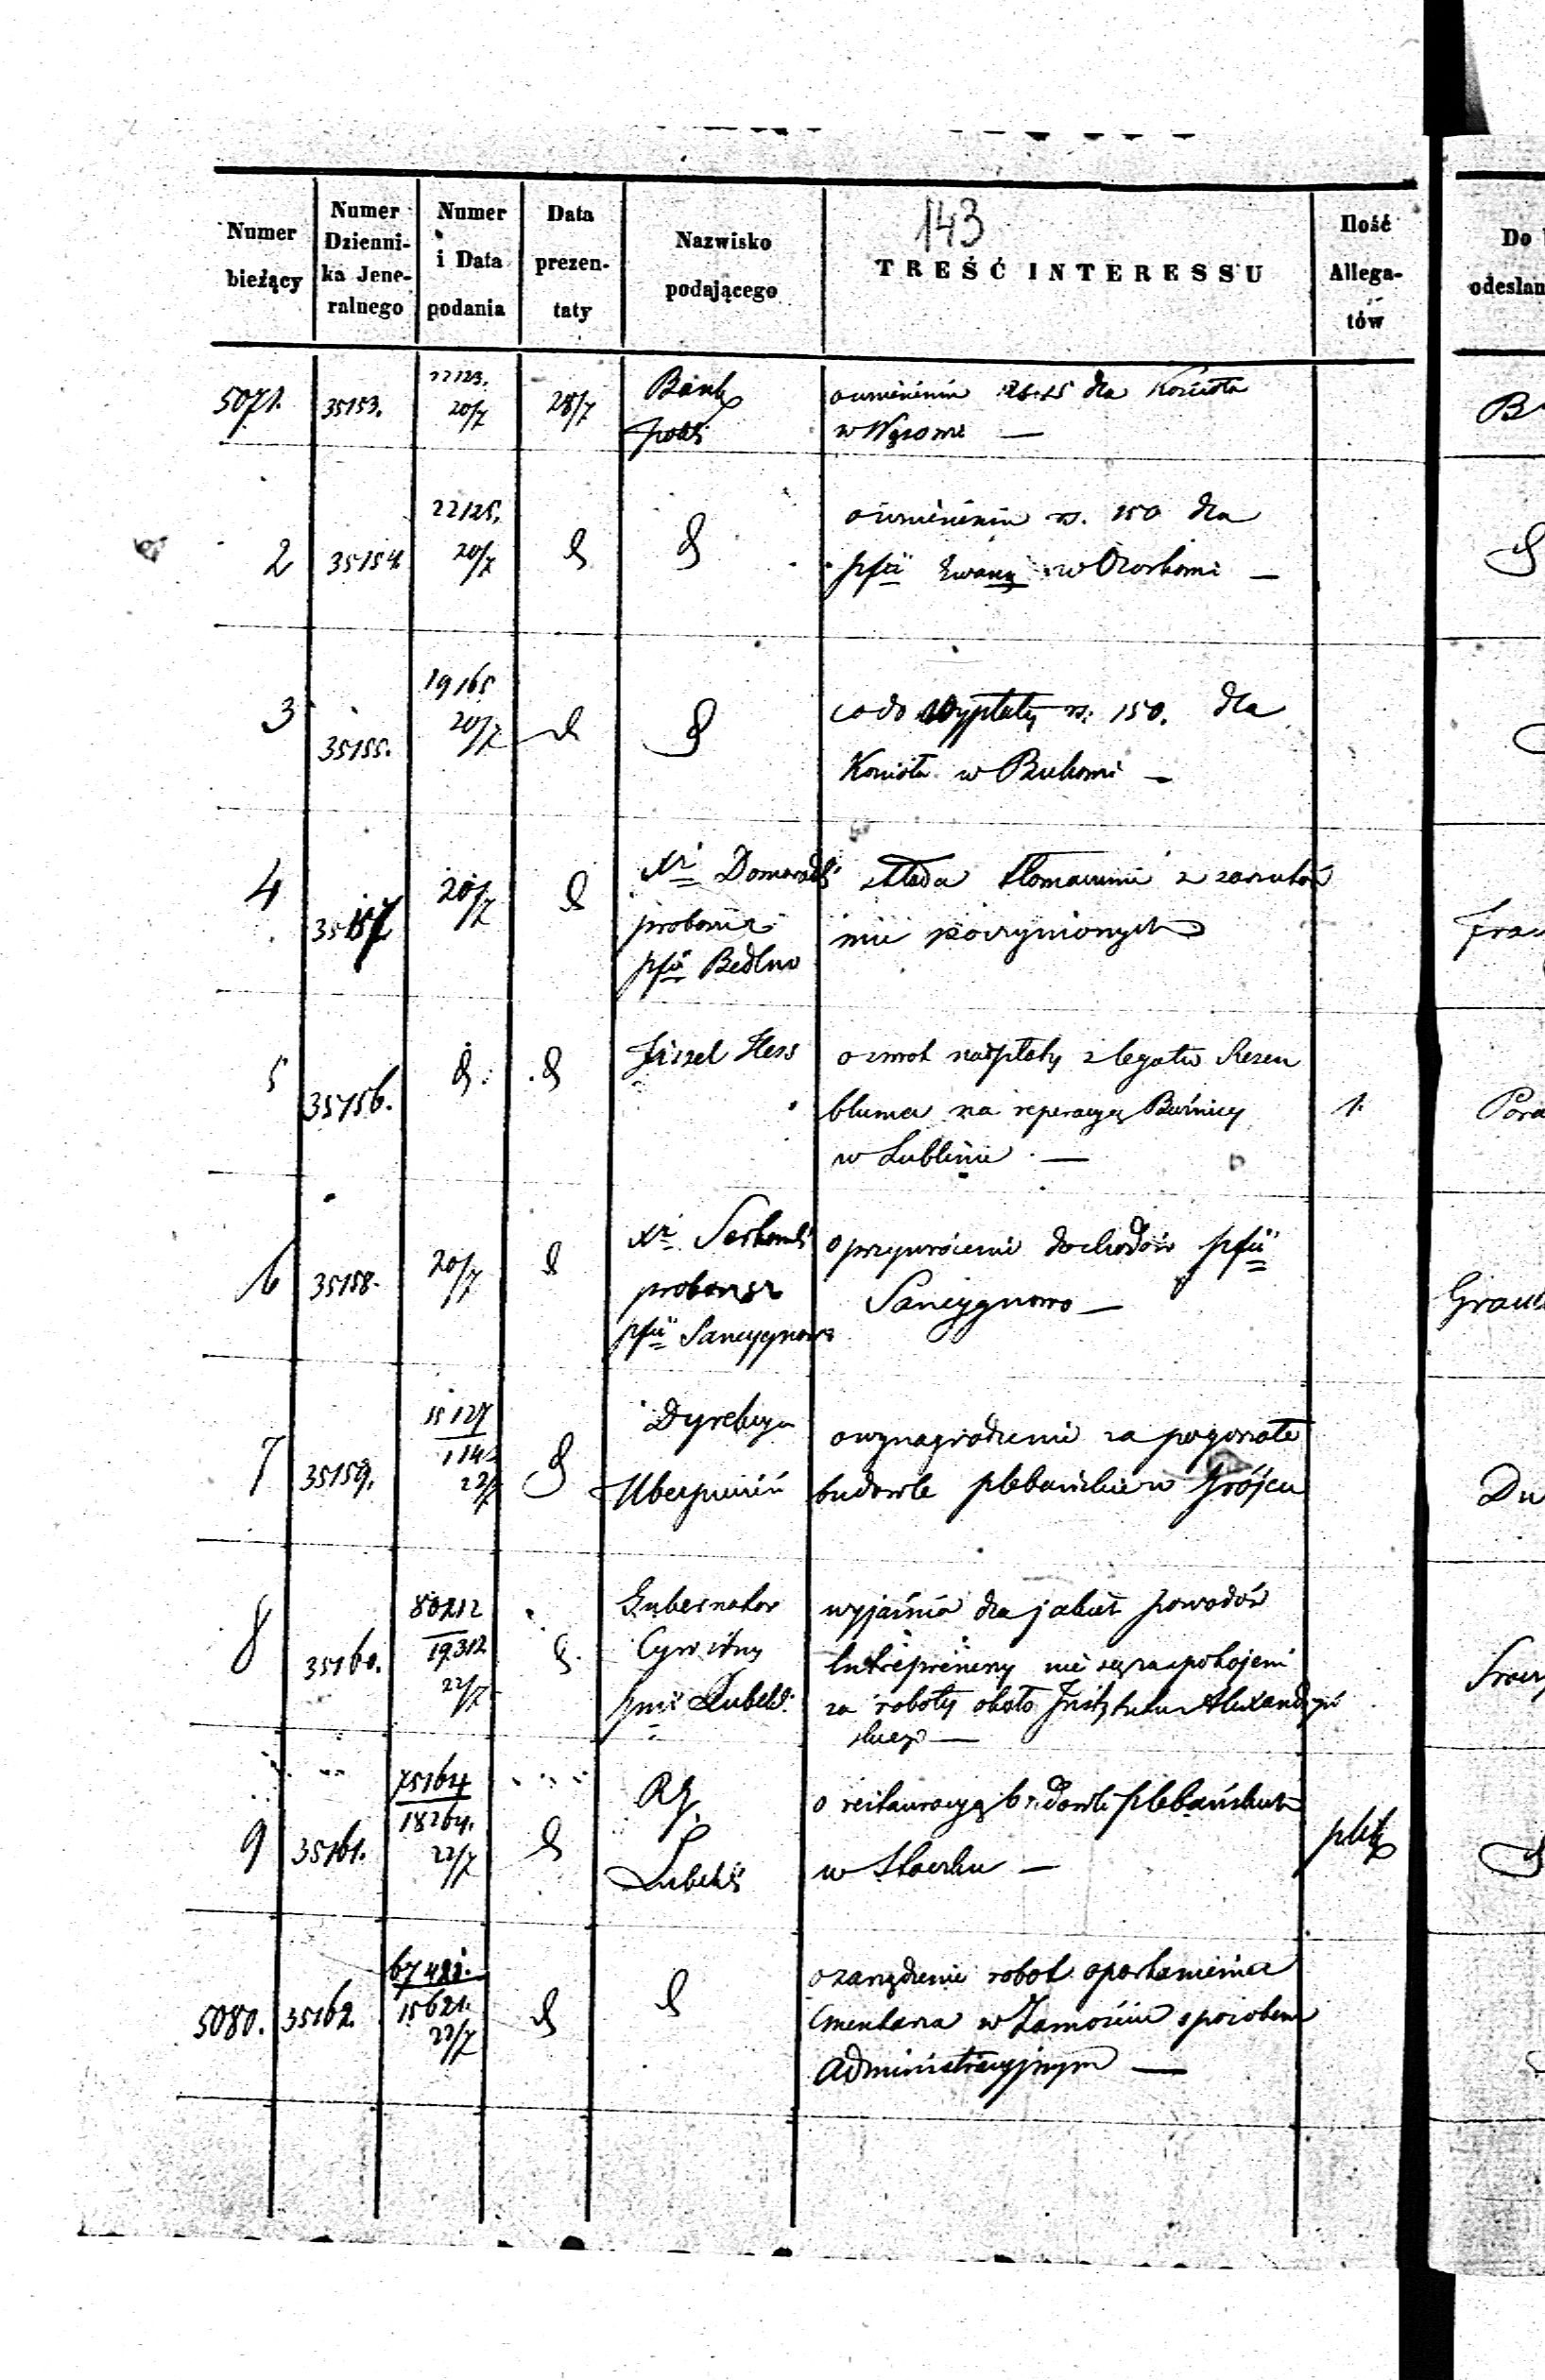 143
Numer bieżący | Numer Dzienni-ka Jene-ralnego | Numer i Data podania | Data prezen-taty | Nazwisko podającego | TREŚĆ INTERESSU | Ilość Allega-tów | Do odesłan
5071. 35153. 22123. 20/7 28/7 Bank
Polski
o umieniem dla Kościoła
w
2 35154 22125. 20/7 d d
o umieniem rs. 150 dla
pfii Ewang w Ozorkowi —
3 35155. 19165 20/7 d d
co do wypłaty rs. 150. dla
Kościoła w —
4 35157 20/7 d Xdz
proboszcz
pfii Bedlno
składa tłomaczenie z zarzutów
mu poczynionych
5 35156. d. d Hess
o zwrot nadpłaty z legatu Rozen
bluma na reperacyą Bóżnicy
w Lublinie. — 1.
6 35158. 20/7 d Xdz
proboszcz
pfii Sancygnow
o przywrócenie dochodów pfii
Sancygnowo —
7 35159. 15127 114 22/7 d Dyrekcya
Ubezpieczeń
o wynagrodzenie za pogorzałe
budowle plebańskie w Grójcu
8 35160. 80212 19312 22/7 d. Gubernator
Cywilny
Gub Lubels.
wyjaśnia dla jakich powodów
Entreprenery nie są zaspokojeni
za roboty około Instytutu Alexandryń
skiego —
9 35161. 75164 18264. 22/7 d RG.
Lubelski
o restauracyą budowli plebańskich
w — plik
5080. 35162. 15621. 22/7 d d
o zarządzenie robot oparkanienia
Cmentarza w Zamościu sposobem
Administracyjnym —
Do
odesłan
B
d
Pora
Du